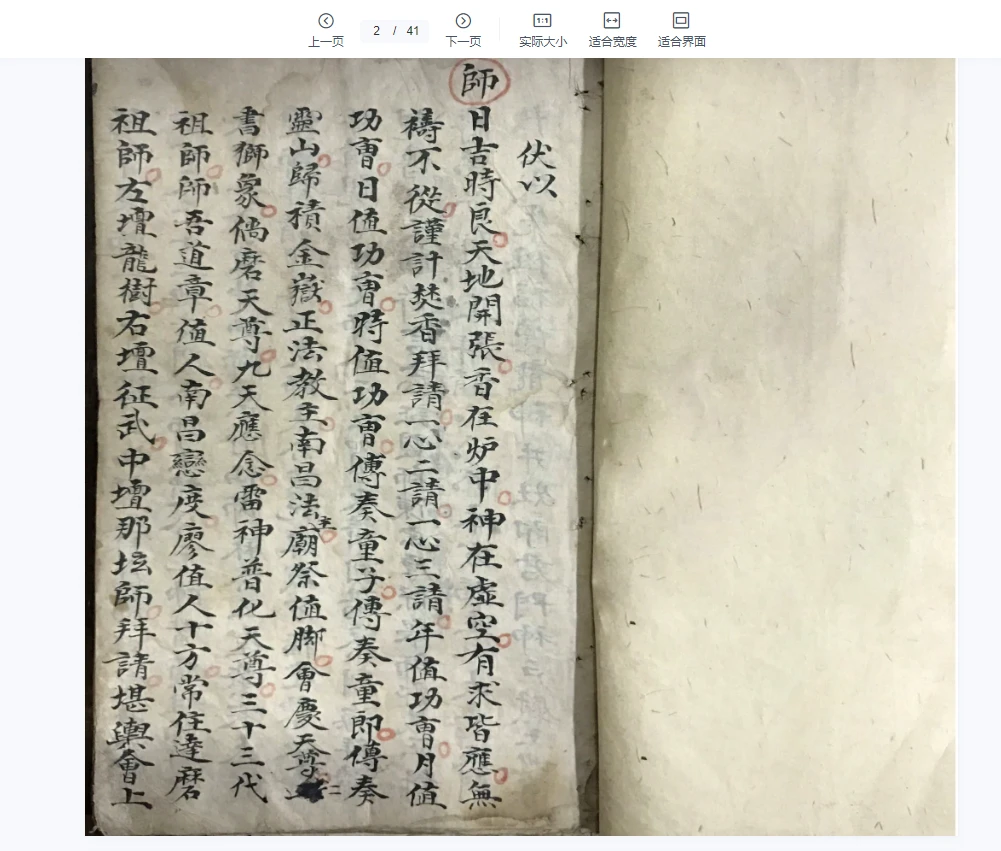 上一页
2 / 41
下一页
1:1
实际大小
适合宽度
适合界面
伏以
師
日吉時良天地開張香在炉中神在虛空有求皆應無
禱不從謹訐焚香拜請一心二請一心三請年值功曹月值
功曹日值功曹時值功曹傳奏童子傳奏童郎傳奏
靈山歸積金嶽正法教主南昌法主廟祭值脚會慶天尊
書獅象偈磨天尊九天應念雷神普化天尊三十三代
祖師師吾道章值人南昌戀度廖值人十方常住達磨
祖師左壇龍樹右壇征武中壇那坛師拜請堪輿會上